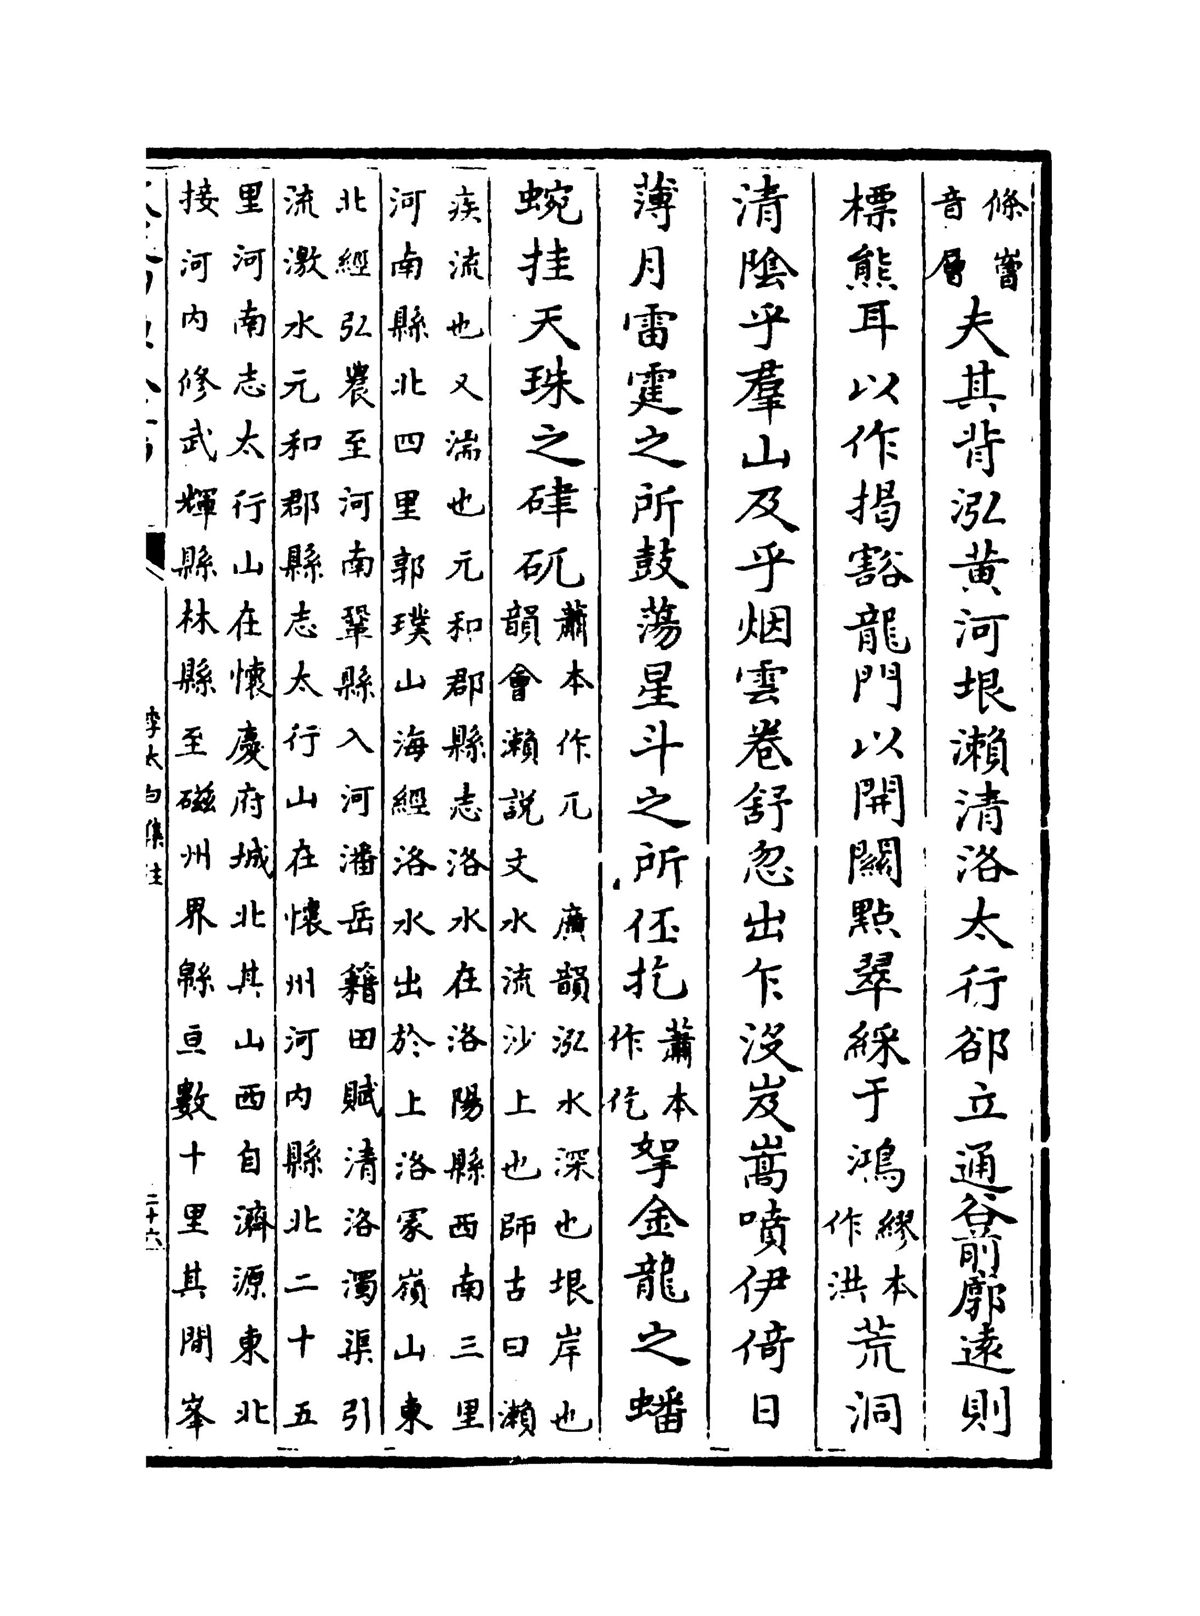 條嶒
音層
夫其背泓黃河垠瀨清洛太行卻立通谷前廓遠則
標熊耳以作揭豁龍門以開闢點翠綵于鴻
繆本
作洪
荒洞
清陰乎羣山及乎烟雲卷舒忽出乍沒岌嵩噴伊倚日
薄月雷霆之所鼓蕩星斗之所伾扢
蕭本
作仡
挐金龍之蟠
蜿挂天珠之硉矹
蕭本作兀　廣韻泓水深也垠岸也
韻會瀨說文水流沙上也師古曰瀨
疾流也又湍也元和郡縣志洛水在洛陽縣西南三里
河南縣北四里郭璞山海經洛水出於上洛冢嶺山東
北經弘農至河南鞏縣入河潘岳籍田賦清洛濁渠引
流激水元和郡縣志太行山在懷州河內縣北二十五
里河南志太行山在懷慶府城北其山西自濟源東北
接河內修武輝縣林縣至磁州界緜亘數十里其間峯
李太白集注
二十六